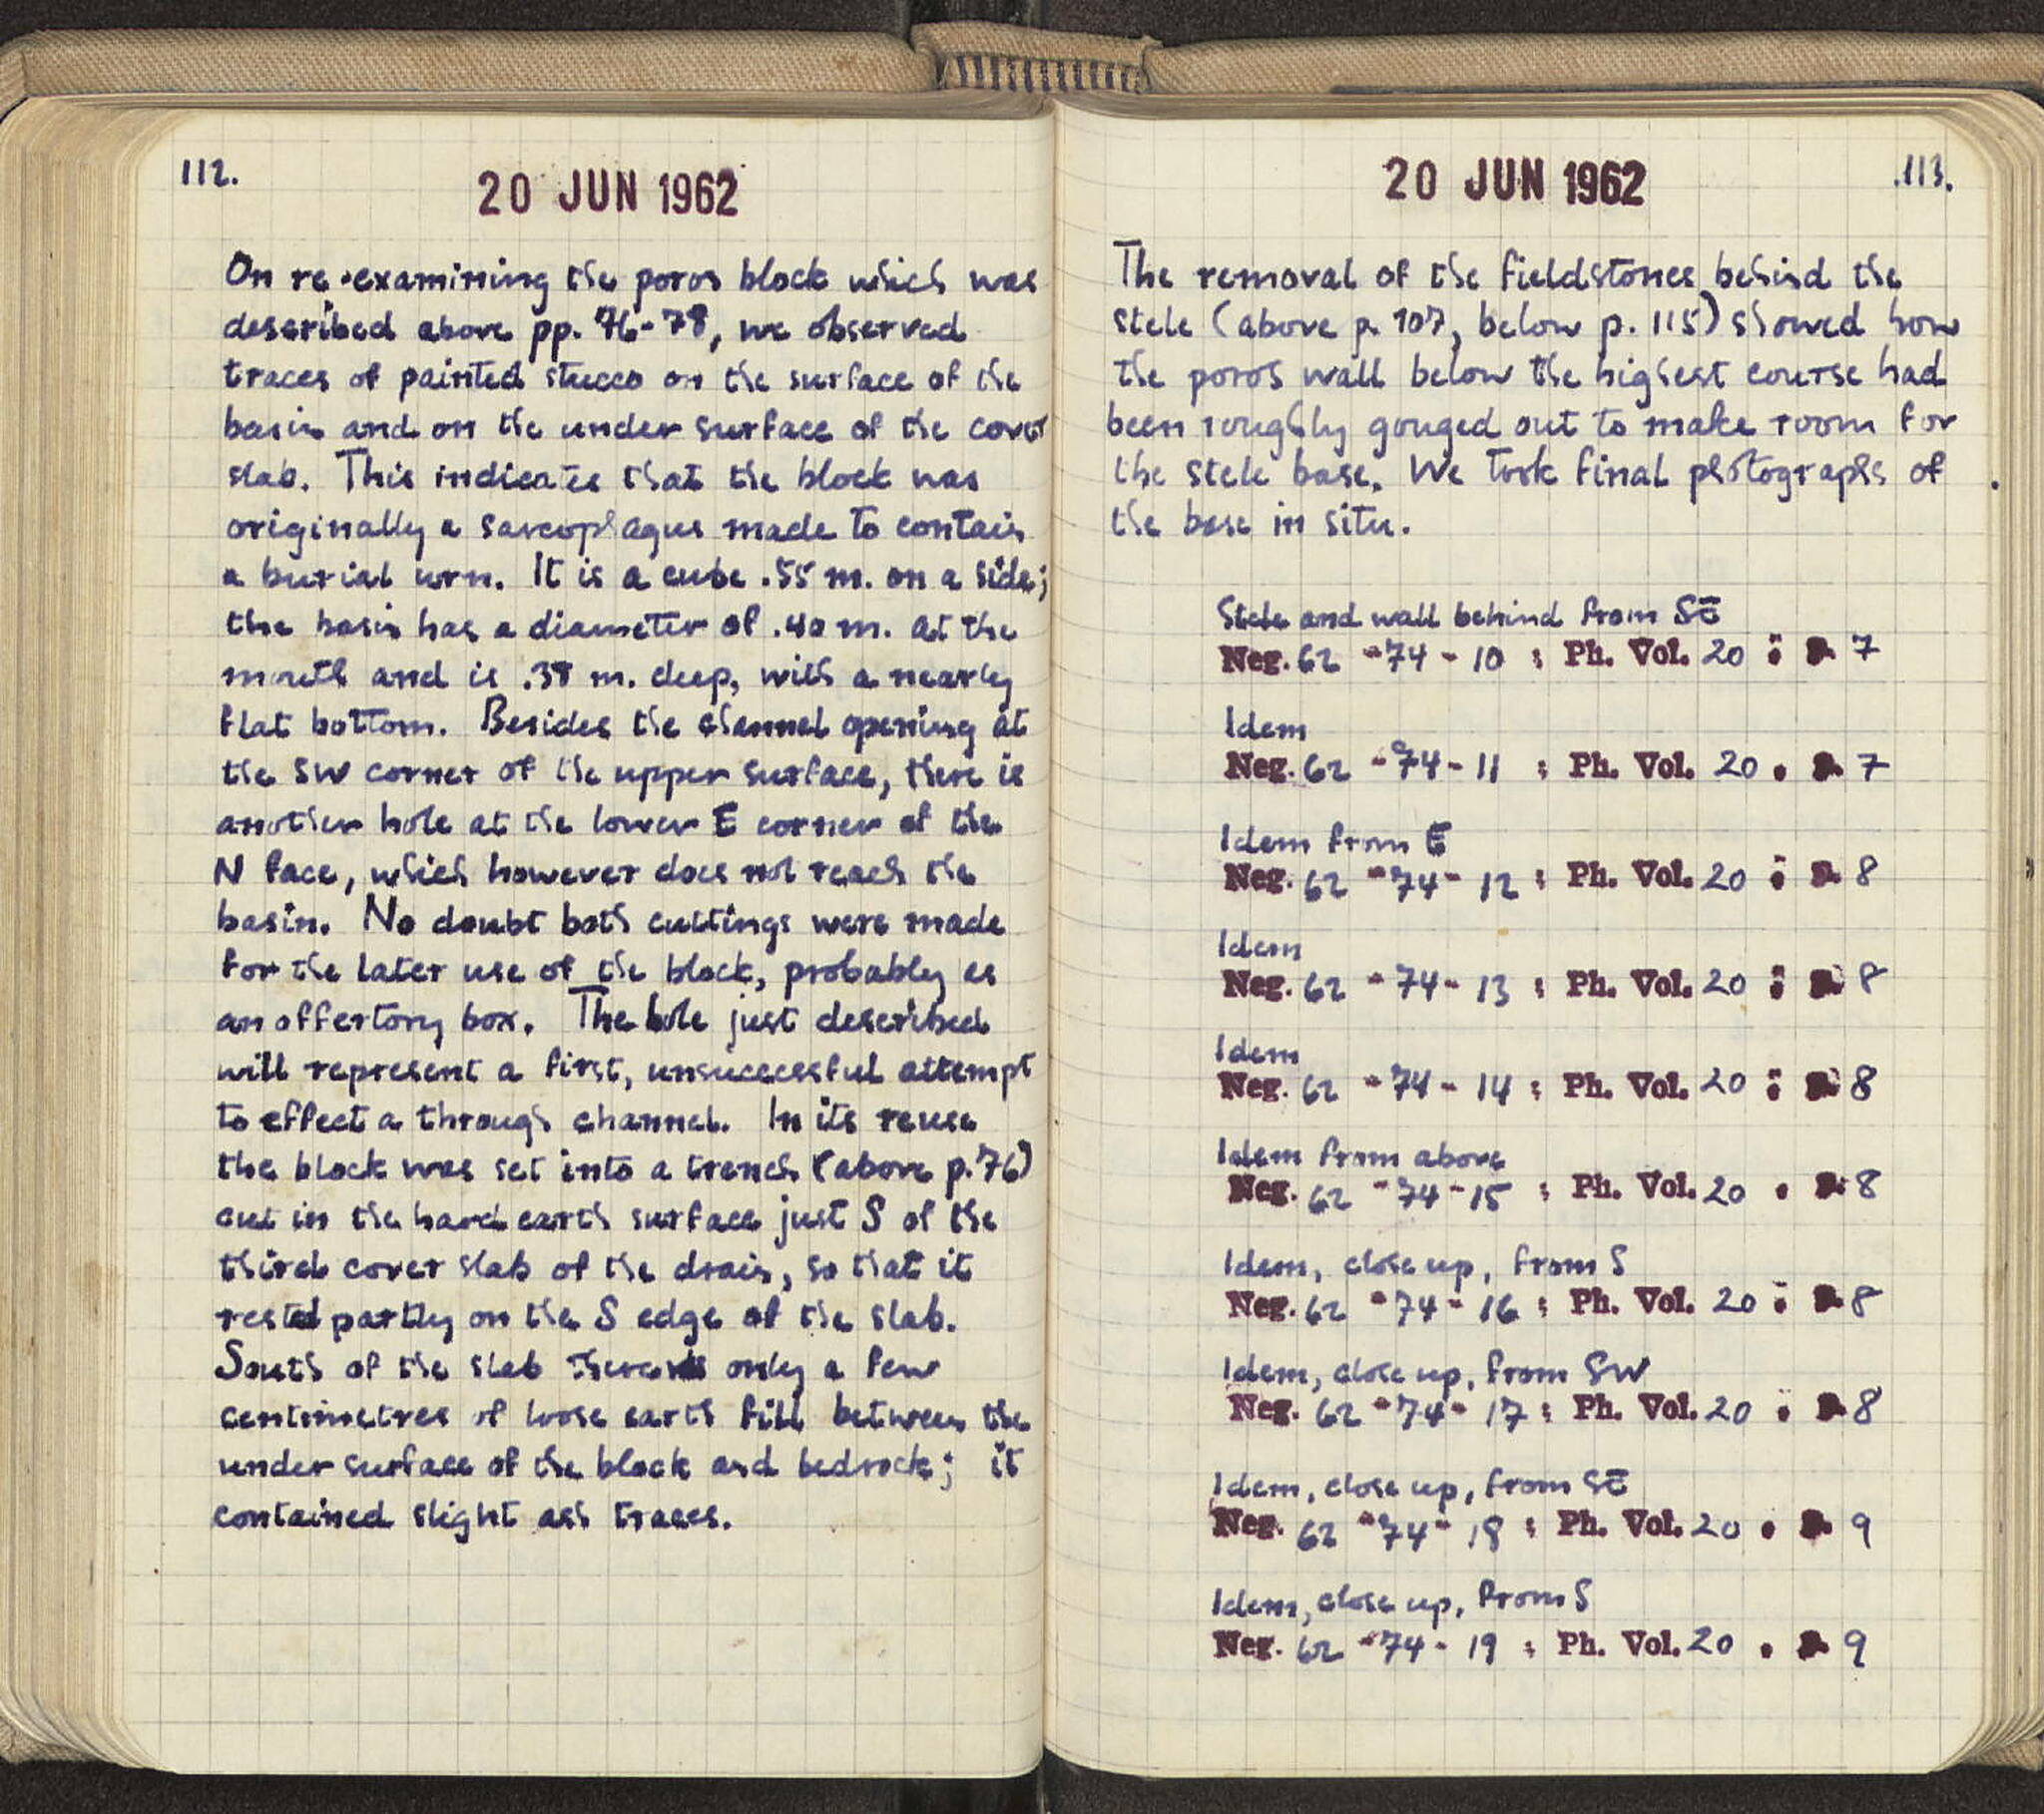 112.
20 JUN 1962
On re-examining the poros block which was
described above pp. 76-78, we observed
traces of painted stucco on the surface of the
basin and on the under surface of the cover
slab. This indicates that the block was
originally a sarcophagus made to contain
a burial urn. It is a cube .55 m. on a side;
the basin has a diameter of .40 m. at the
mouth and is .38 m. deep, with a nearly
flat bottom. Besides the channel opening at
the SW corner of the upper surface, there is
another hole at the lower E corner of the
N face, which however does not reach the
basin. No doubt both cuttings were made
for the later use of the block, probably as
an offertory box. The hole just described
will represent a first, unsuccessful attempt
to effect a through channel. In its reuse
the block was set into a trench (above p. 76)
cut in the hard earth surface just S of the
third cover slab of the drain, so that it
rested partly on the S edge of the slab.
South of the slab there was only a few
centimetres of loose earth fill between the
under surface of the block and bedrock; it
contained slight ash traces.
20 JUN 1962
113.
The removal of the fieldstones behind the
stele (above p. 107, below p. 115) showed how
the poros wall below the highest course had
been roughly gouged out to make room for
the stele base. We took final photographs of
the base in situ.
Stele and wall behind from SE
Neg. 62 - 74 - 10 : Ph. Vol. 20 : 7
Idem
Neg. 62 - 74 - 11 : Ph. Vol. 20 . 7
Idem from E
Neg. 62 - 74 - 12 : Ph. Vol. 20 : 8
Idem
Neg. 62 - 74 - 13 : Ph. Vol. 20 : 8
Idem
Neg. 62 - 74 - 14 : Ph. Vol. 20 : 8
Idem from above
Neg. 62 - 74 - 15 : Ph. Vol. 20 . 8
Idem, close up, from S
Neg. 62 - 74 - 16 : Ph. Vol. 20 : 8
Idem, close up, from SW
Neg. 62 - 74 - 17 : Ph. Vol. 20 : 8
Idem, close up, from SE
Neg. 62 - 74 - 18 : Ph. Vol. 20 . 9
Idem, close up, from S
Neg. 62 - 74 - 19 : Ph. Vol. 20 . 9